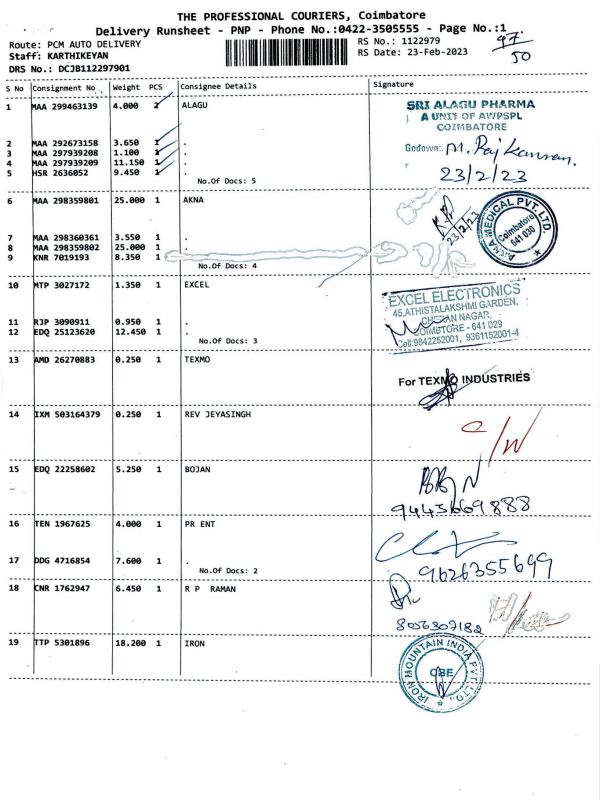 THE PROFESSIONAL COURIERS, Coimbatore
Delivery Runsheet - PNP - Phone No.:0422-3505555 - Page No.:1
Route: PCM AUTO DELIVERY RS No.: 1122979 97
Staff: KARTHIKEYAN RS Date: 23-Feb-2023 50
DRS No.: DCJB112297901
S No Consignment No Weight PCS Consignee Details Signature
1 MAA 299463139 4.000 1 ALAGU
SRI ALAGU PHARMA
A UNIT OF AWPSPL
COIMBATORE
2 MAA 292673158 3.650 1 .
3 MAA 297939208 1.100 1 .
4 MAA 297939209 11.150 1 .
5 HSR 2636052 9.450 1 .
Godown:- M. Raj Kannan.
23/2/23
No.Of Docs: 5
6 MAA 298359801 25.000 1 AKNA
23/2/23
MEDICAL PVT. LTD.
Coimbatore
641 030
7 MAA 298360361 3.550 1 .
8 MAA 298359802 25.000 1 .
9 KNR 7019193 8.350 1 .
No.Of Docs: 4
10 MTP 3027172 1.350 1 EXCEL
EXCEL ELECTRONICS
45,ATHISTALAKSHMI GARDEN,
CHERAN NAGAR,
COIMBTORE - 641 029
Cell:9842252001, 9361152001-4
11 RJP 3090911 0.950 1 .
12 EDQ 25123620 12.450 1 .
No.Of Docs: 3
13 AMD 26270883 0.250 1 TEXMO
For TEXMO INDUSTRIES
14 IXM 503164379 0.250 1 REV JEYASINGH
C/W
15 EDQ 22258602 5.250 1 BOJAN
9443669888
16 TEN 1967625 4.000 1 PR ENT
17 DDG 4716854 7.600 1 .
No.Of Docs: 2
9626355699
18 CNR 1762947 6.450 1 R P RAMAN
8056307182
19 TTP 5301896 18.200 1 IRON
IRON MOUNTAIN INDIA PVT. LTD.,
CBE